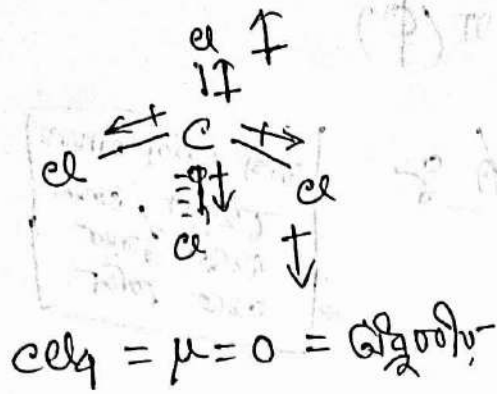 Cl
C
Cl
Cl
Cl
CCl4 = μ = 0 = অধ্রুবীয়